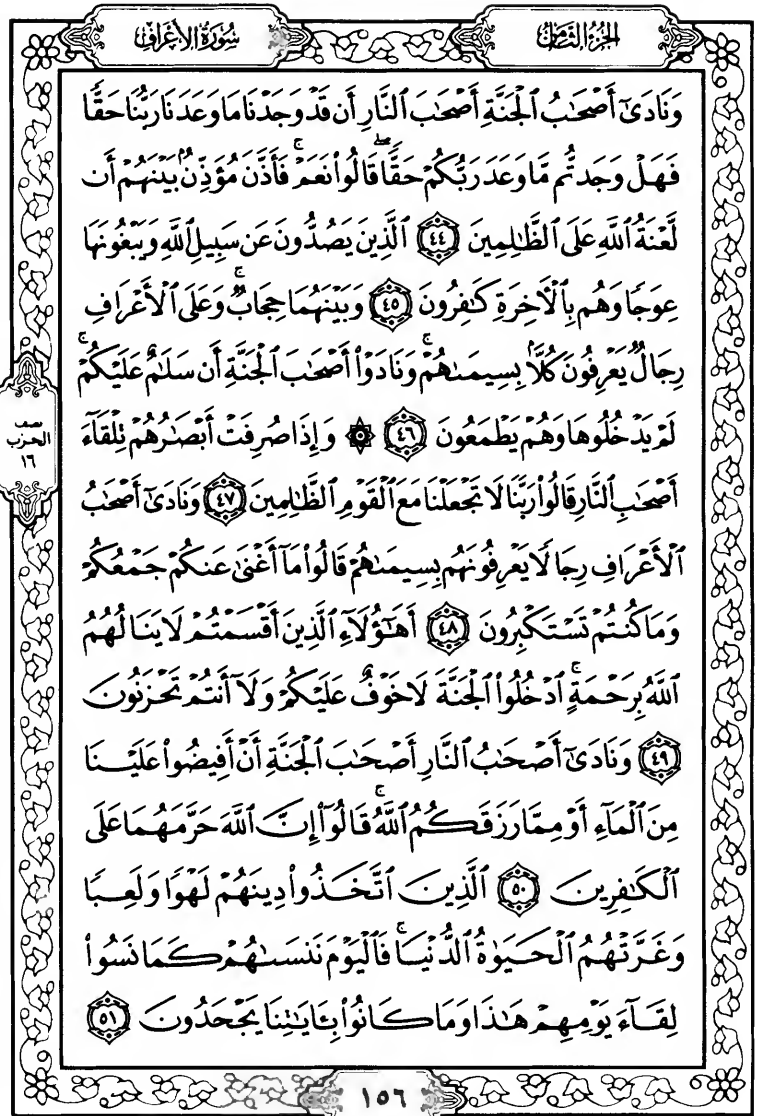 الجزء الثامن
سورة الأعراف
وَنَادَىٰٓ أَصْحَـٰبُ ٱلْجَنَّةِ أَصْحَـٰبَ ٱلنَّارِ أَن قَدْ وَجَدْنَا مَا وَعَدَنَا رَبُّنَا حَقًّا
فَهَلْ وَجَدتُّم مَّا وَعَدَ رَبُّكُمْ حَقًّا ۖ قَالُوا۟ نَعَمْ ۚ فَأَذَّنَ مُؤَذِّنٌۢ بَيْنَهُمْ أَن
لَّعْنَةُ ٱللَّهِ عَلَى ٱلظَّـٰلِمِينَ ٤٤ ٱلَّذِينَ يَصُدُّونَ عَن سَبِيلِ ٱللَّهِ وَيَبْغُونَهَا
عِوَجًا وَهُم بِٱلْـَٔاخِرَةِ كَـٰفِرُونَ ٤٥ وَبَيْنَهُمَا حِجَابٌ ۚ وَعَلَى ٱلْأَعْرَافِ
رِجَالٌ يَعْرِفُونَ كُلًّۢا بِسِيمَىٰهُمْ ۚ وَنَادَوْا۟ أَصْحَـٰبَ ٱلْجَنَّةِ أَن سَلَـٰمٌ عَلَيْكُمْ ۚ
لَمْ يَدْخُلُوهَا وَهُمْ يَطْمَعُونَ ٤٦ ۞ وَإِذَا صُرِفَتْ أَبْصَـٰرُهُمْ تِلْقَآءَ
أَصْحَـٰبِ ٱلنَّارِ قَالُوا۟ رَبَّنَا لَا تَجْعَلْنَا مَعَ ٱلْقَوْمِ ٱلظَّـٰلِمِينَ ٤٧ وَنَادَىٰٓ أَصْحَـٰبُ
ٱلْأَعْرَافِ رِجَالًا يَعْرِفُونَهُم بِسِيمَىٰهُمْ قَالُوا۟ مَآ أَغْنَىٰ عَنكُمْ جَمْعُكُمْ
وَمَا كُنتُمْ تَسْتَكْبِرُونَ ٤٨ أَهَـٰٓؤُلَآءِ ٱلَّذِينَ أَقْسَمْتُمْ لَا يَنَالُهُمُ
ٱللَّهُ بِرَحْمَةٍ ۚ ٱدْخُلُوا۟ ٱلْجَنَّةَ لَا خَوْفٌ عَلَيْكُمْ وَلَآ أَنتُمْ تَحْزَنُونَ
٤٩ وَنَادَىٰٓ أَصْحَـٰبُ ٱلنَّارِ أَصْحَـٰبَ ٱلْجَنَّةِ أَنْ أَفِيضُوا۟ عَلَيْنَا
مِنَ ٱلْمَآءِ أَوْ مِمَّا رَزَقَكُمُ ٱللَّهُ ۚ قَالُوٓا۟ إِنَّ ٱللَّهَ حَرَّمَهُمَا عَلَى
ٱلْكَـٰفِرِينَ ٥٠ ٱلَّذِينَ ٱتَّخَذُوا۟ دِينَهُمْ لَهْوًا وَلَعِبًا
وَغَرَّتْهُمُ ٱلْحَيَوٰةُ ٱلدُّنْيَا ۚ فَٱلْيَوْمَ نَنسَىٰهُمْ كَمَا نَسُوا۟
لِقَآءَ يَوْمِهِمْ هَـٰذَا وَمَا كَانُوا۟ بِـَٔايَـٰتِنَا يَجْحَدُونَ ٥١
نصف
الحزب
١٦
١٥٦